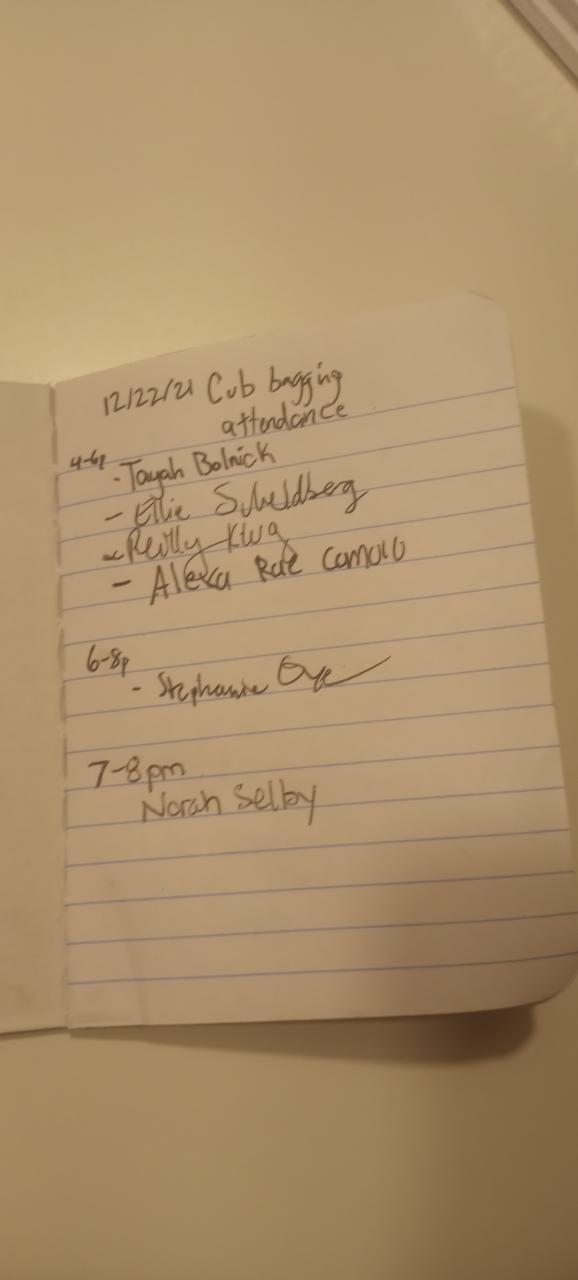 12/22/21 Cub bagging
attendance
4-6p
- Tayah Bolnick
- Ellie Scheldberg
- Reilly Klug
- Alexa Rae
6-8p
- Stephanie
7-8pm
Norah Selby